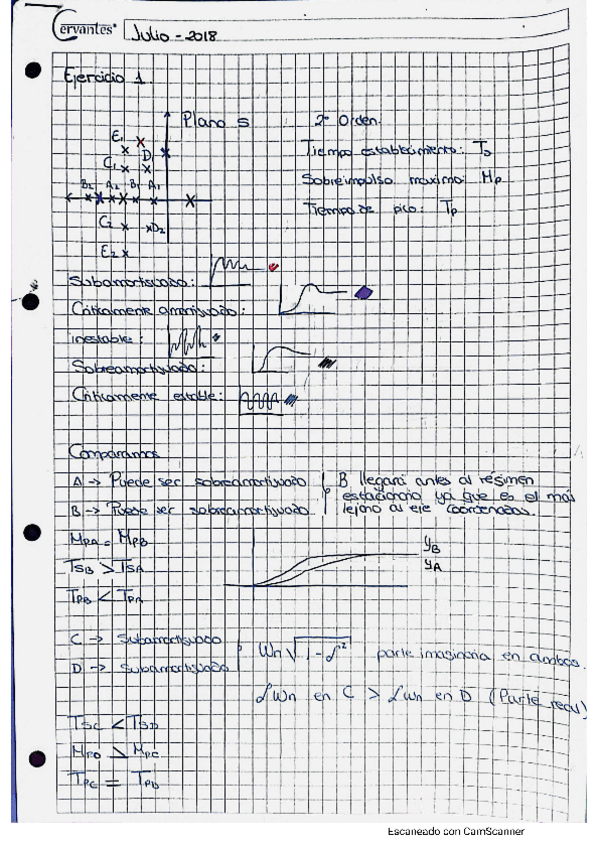 Cervantes Julio - 2018
Ejercicio 1
Plano s 2º Orden.
E1
D1
C1
B2 A2 B1 A1
C2 D2
E2
Tiempo establecimiento: Ts
Sobreimpulso maximo: Mp
Tiempo de pico: Tp
Subamortiguado:
Criticamente amortiguado:
inestable:
Sobreamortiguado:
Criticamente estable:
Comparamos
A -> Puede ser sobreamortiguado
B -> Puede ser sobreamortiguado
B llegará antes al régimen
estacionario ya que es el más
lejano al eje coordenadas.
MPA = MPB
TSB > TSA
TPB < TPA
yB
yA
C -> Subamortiguado
D -> Subamortiguado
Wn √1-δ² parte imaginaria en ambos.
δWn en C > δWn en D (Parte real)
TSC < TSD
MPD > MPC
TPC = TPD
Escaneado con CamScanner